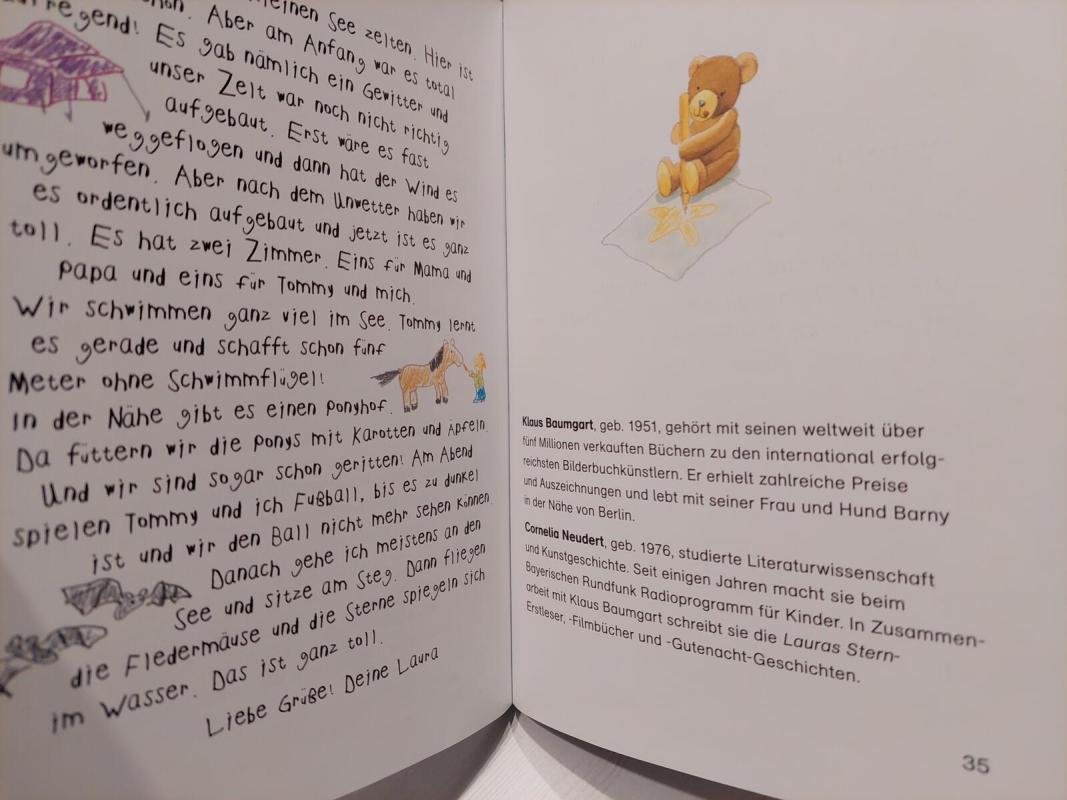 einen See zelten. Hier ist
. Aber am Anfang war es total
regend! Es gab nämlich ein Gewitter und
unser Zelt war noch nicht richtig
aufgebaut. Erst wäre es fast
weggeflogen und dann hat der Wind es
umgeworfen. Aber nach dem Unwetter haben wir
es ordentlich aufgebaut und jetzt ist es ganz
toll. Es hat zwei Zimmer. Eins für Mama und
Papa und eins für Tommy und mich.
Wir schwimmen ganz viel im See. Tommy lernt
es gerade und schafft schon fünf
Meter ohne Schwimmflügel!
In der Nähe gibt es einen Ponyhof.
Da füttern wir die Ponys mit Karotten und Äpfeln.
Und wir sind sogar schon geritten! Am Abend
spielen Tommy und ich Fußball, bis es zu dunkel
ist und wir den Ball nicht mehr sehen können.
Danach gehe ich meistens an den
See und sitze am Steg. Dann fliegen
die Fledermäuse und die Sterne spiegeln sich
im Wasser. Das ist ganz toll.
Liebe Grüße! Deine Laura
Klaus Baumgart, geb. 1951, gehört mit seinen weltweit über
fünf Millionen verkauften Büchern zu den international erfolg-
reichsten Bilderbuchkünstlern. Er erhielt zahlreiche Preise
und Auszeichnungen und lebt mit seiner Frau und Hund Barny
in der Nähe von Berlin.
Cornelia Neudert, geb. 1976, studierte Literaturwissenschaft
und Kunstgeschichte. Seit einigen Jahren macht sie beim
Bayerischen Rundfunk Radioprogramm für Kinder. In Zusammen-
arbeit mit Klaus Baumgart schreibt sie die Lauras Stern-
Erstleser, -Filmbücher und -Gutenacht-Geschichten.
35